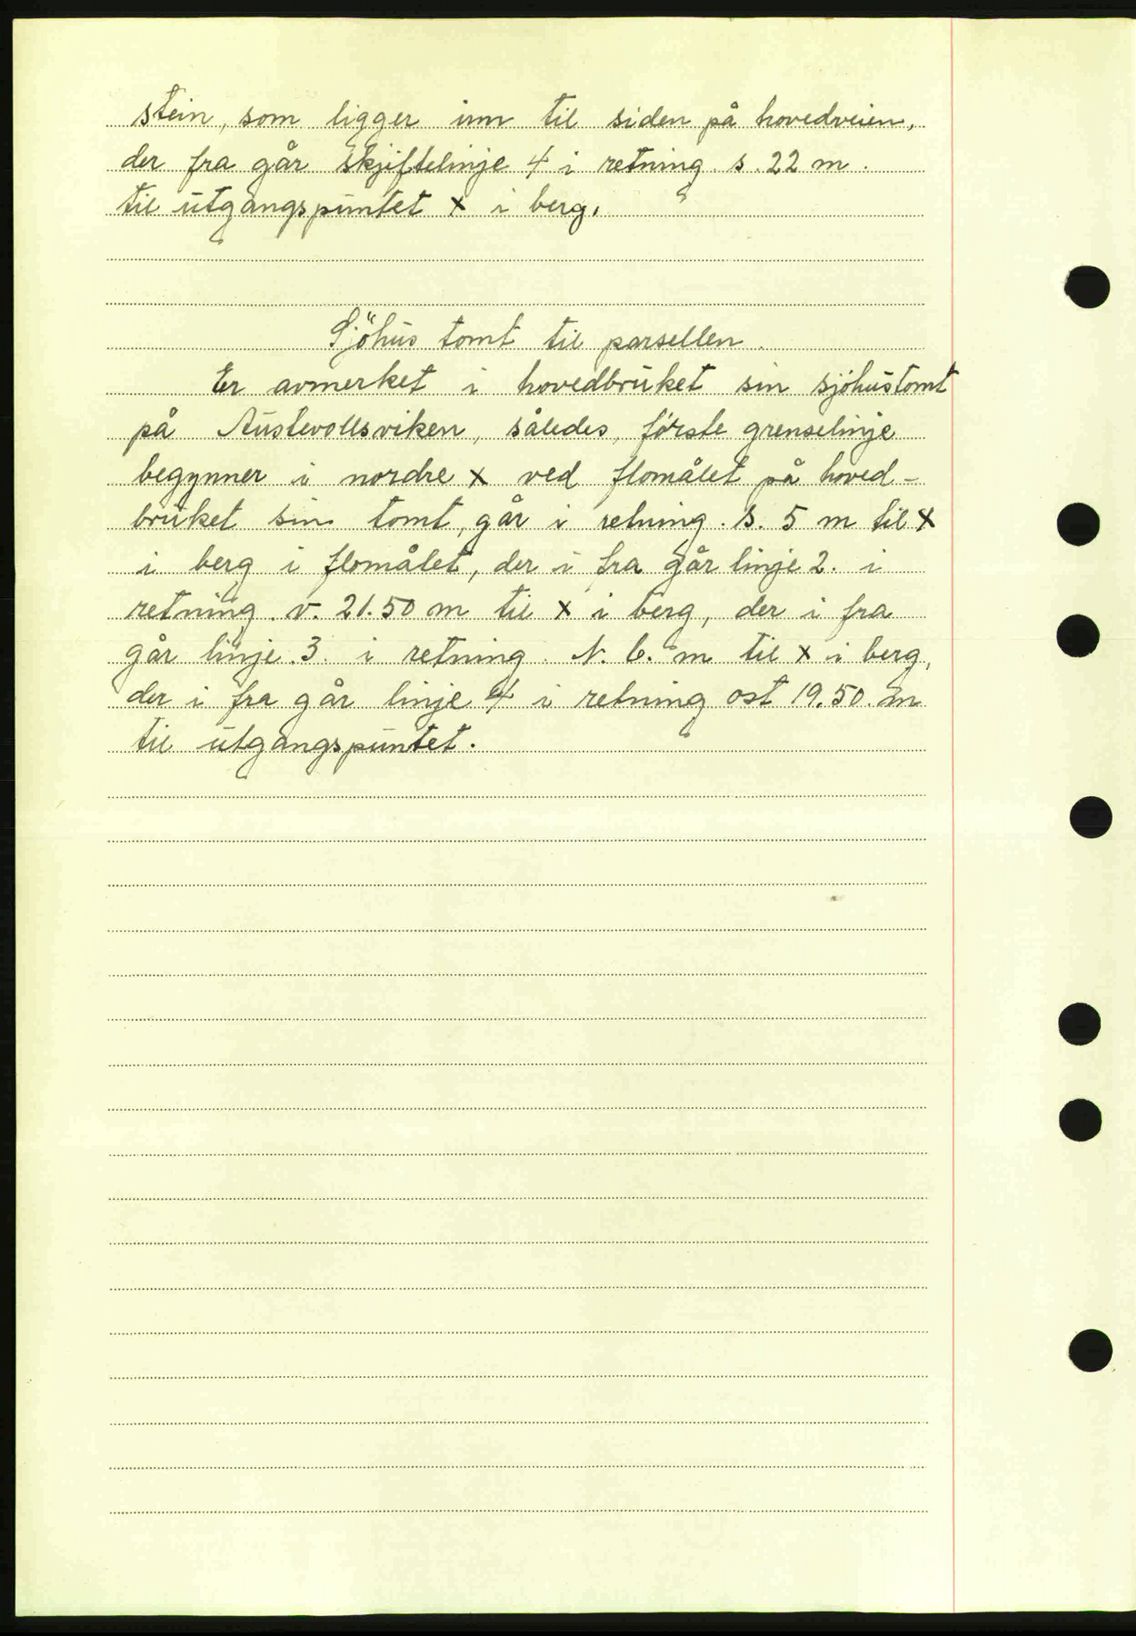 stein, som ligger inn til siden på hovedveien,
der fra går skjiftelinje 4 i retning s. 22 m.
til utgangspuntet x i berg.
Sjöhus tomt til parsellen.
Er avmerket i hovedbruket sin sjöhustomt
på Austevollsviken, således, förste grenselinje
begynner i nordre x ved flomålet på hoved-
bruket sin tomt, går i retning. s. 5 m til x
i berg i flomålet, der i fra går linje 2. i
retning. v. 21.50 m til x i berg, der i fra
går linje. 3. i retning. N. 6. m til x i berg,
der i fra går linje 4 i retning ost 19.50. m
til utgangspuntet.